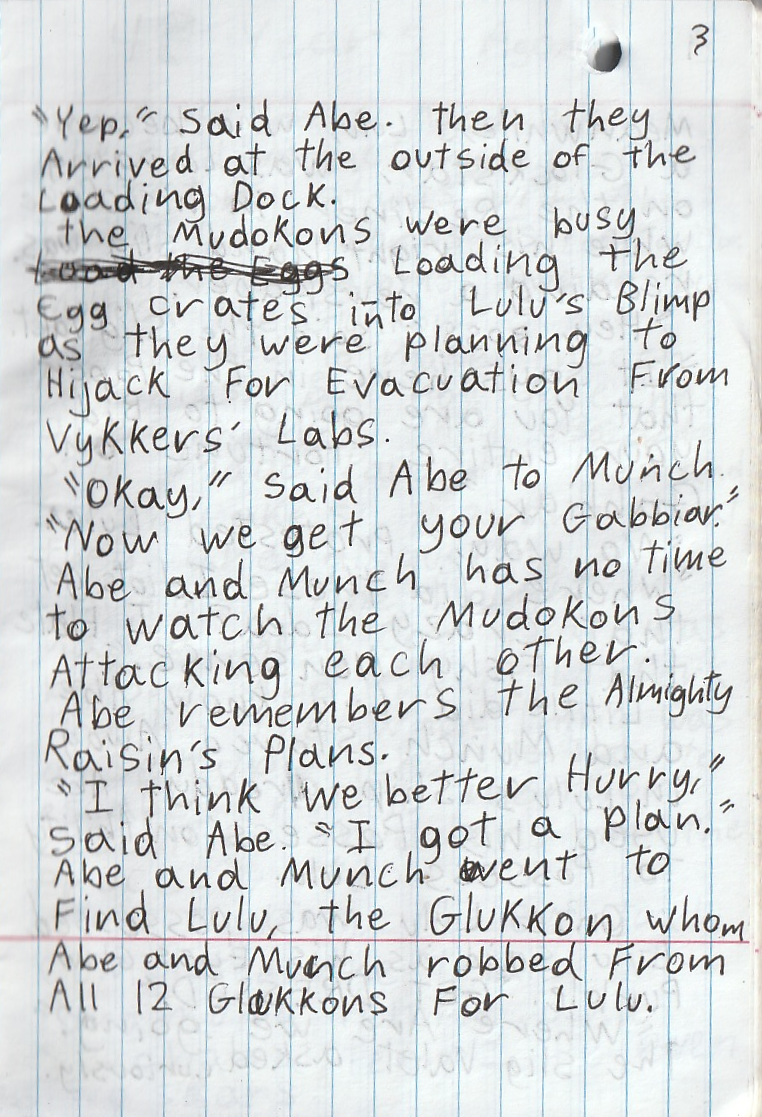 3
"Yep," Said Abe. then they
Arrived at the outside of the
Loading Dock.
the Mudokons were busy
Load the Eggs Loading the
Egg crates into Lulu's Blimp
as they were planning to
Hijack For Evacuation From
Vykkers' Labs.
"Okay," Said Abe to Munch.
"Now we get your Gabbiar."
Abe and Munch has no time
to watch the Mudokons
Attacking each other.
Abe remembers the Almighty
Raisin's Plans.
"I think we better Hurry,"
Said Abe. "I got a plan."
Abe and Munch went to
Find Lulu, the Glukkon whom
Abe and Munch robbed From
All 12 Glukkons For Lulu.